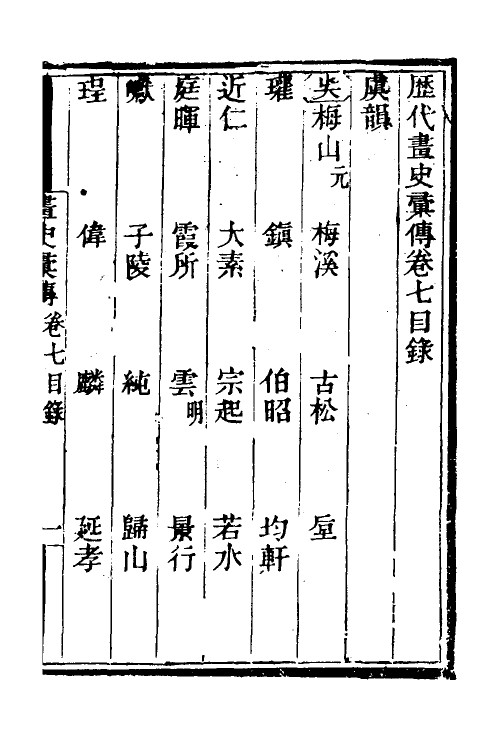 歷代畫史彚傳卷七目錄
虞韻
吳梅山元 梅溪 古松 垕
瓘 鎮 伯昭 均軒
近仁 大素 宗起 若水
庭暉 霞所 雲明 景行
子陵 純 歸山
珵 偉 麟 延孝
畫史彚傳 卷七目錄 一